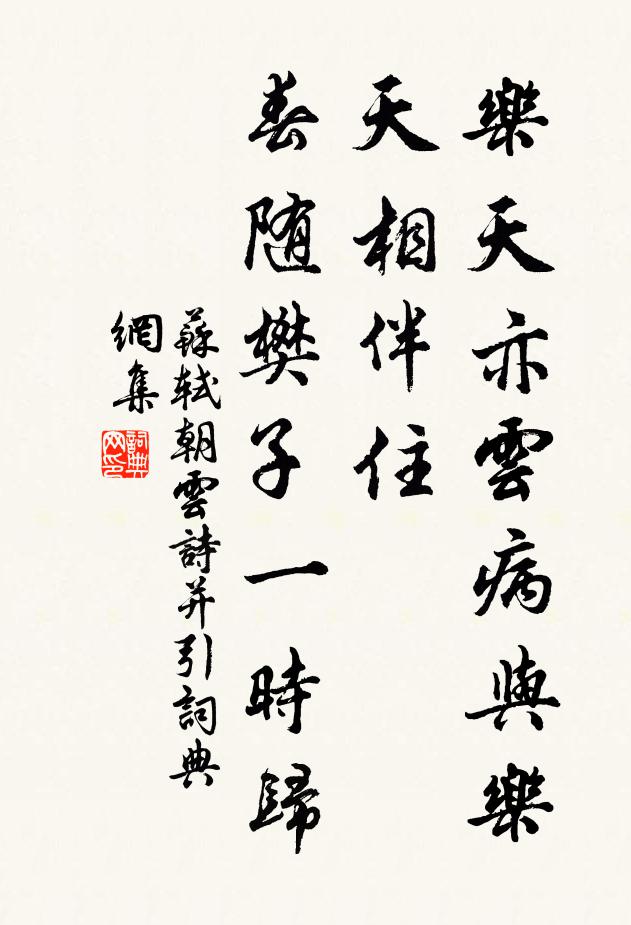 樂天亦雲病與樂
天相伴住
春随樊子一時歸
蘇軾朝雲詩并引詞典
網集
詞典网印